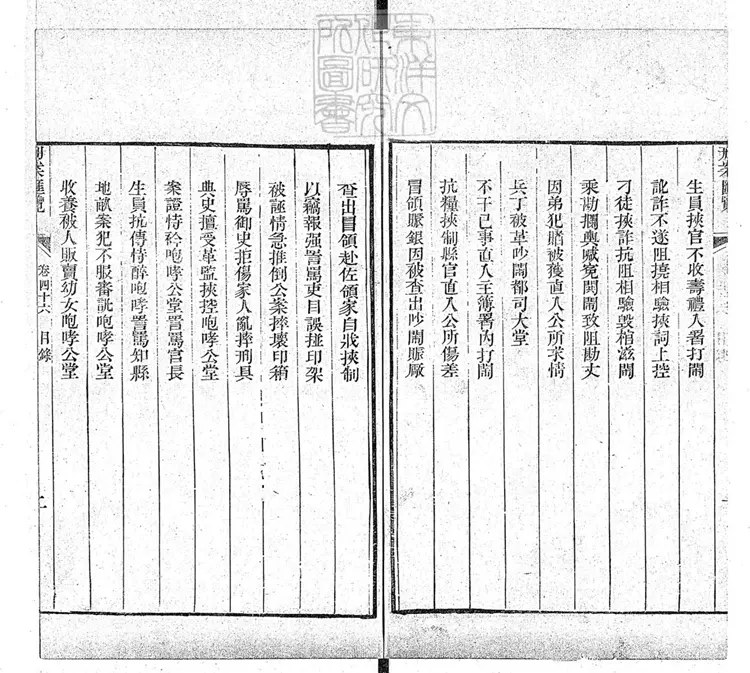 刑案匯覽
生員挾官不收壽禮入署打鬧
訛詐不遂阻撓相驗挾詞上控
刁徒挾詐抗阻相驗毀棺滋鬧
乘勘攔輿喊寃鬨鬧致阻勘丈
因弟犯賭被獲直入公所求情
兵丁被革吵鬧都司大堂
不干己事直入主簿署內打鬧
抗糧挾制縣官直入公所傷差
冒領賑銀因被查出吵鬧賑厰
查出冒領赴佐領家自戕挾制
以竊報强詈罵吏目誤搓印架
被誣情急推倒公案摔壞印箱
辱罵御史拒傷家人亂摔刑具
典史擅受革監挾控咆哮公堂
案證恃衿咆哮公堂詈罵官長
生員抗傳恃醉咆哮詈罵知縣
地畝案犯不服審訊咆哮公堂
收養被人販賣幼女咆哮公堂
刑案匯覽 卷四十六 目錄 二
東洋文化研究所圖書